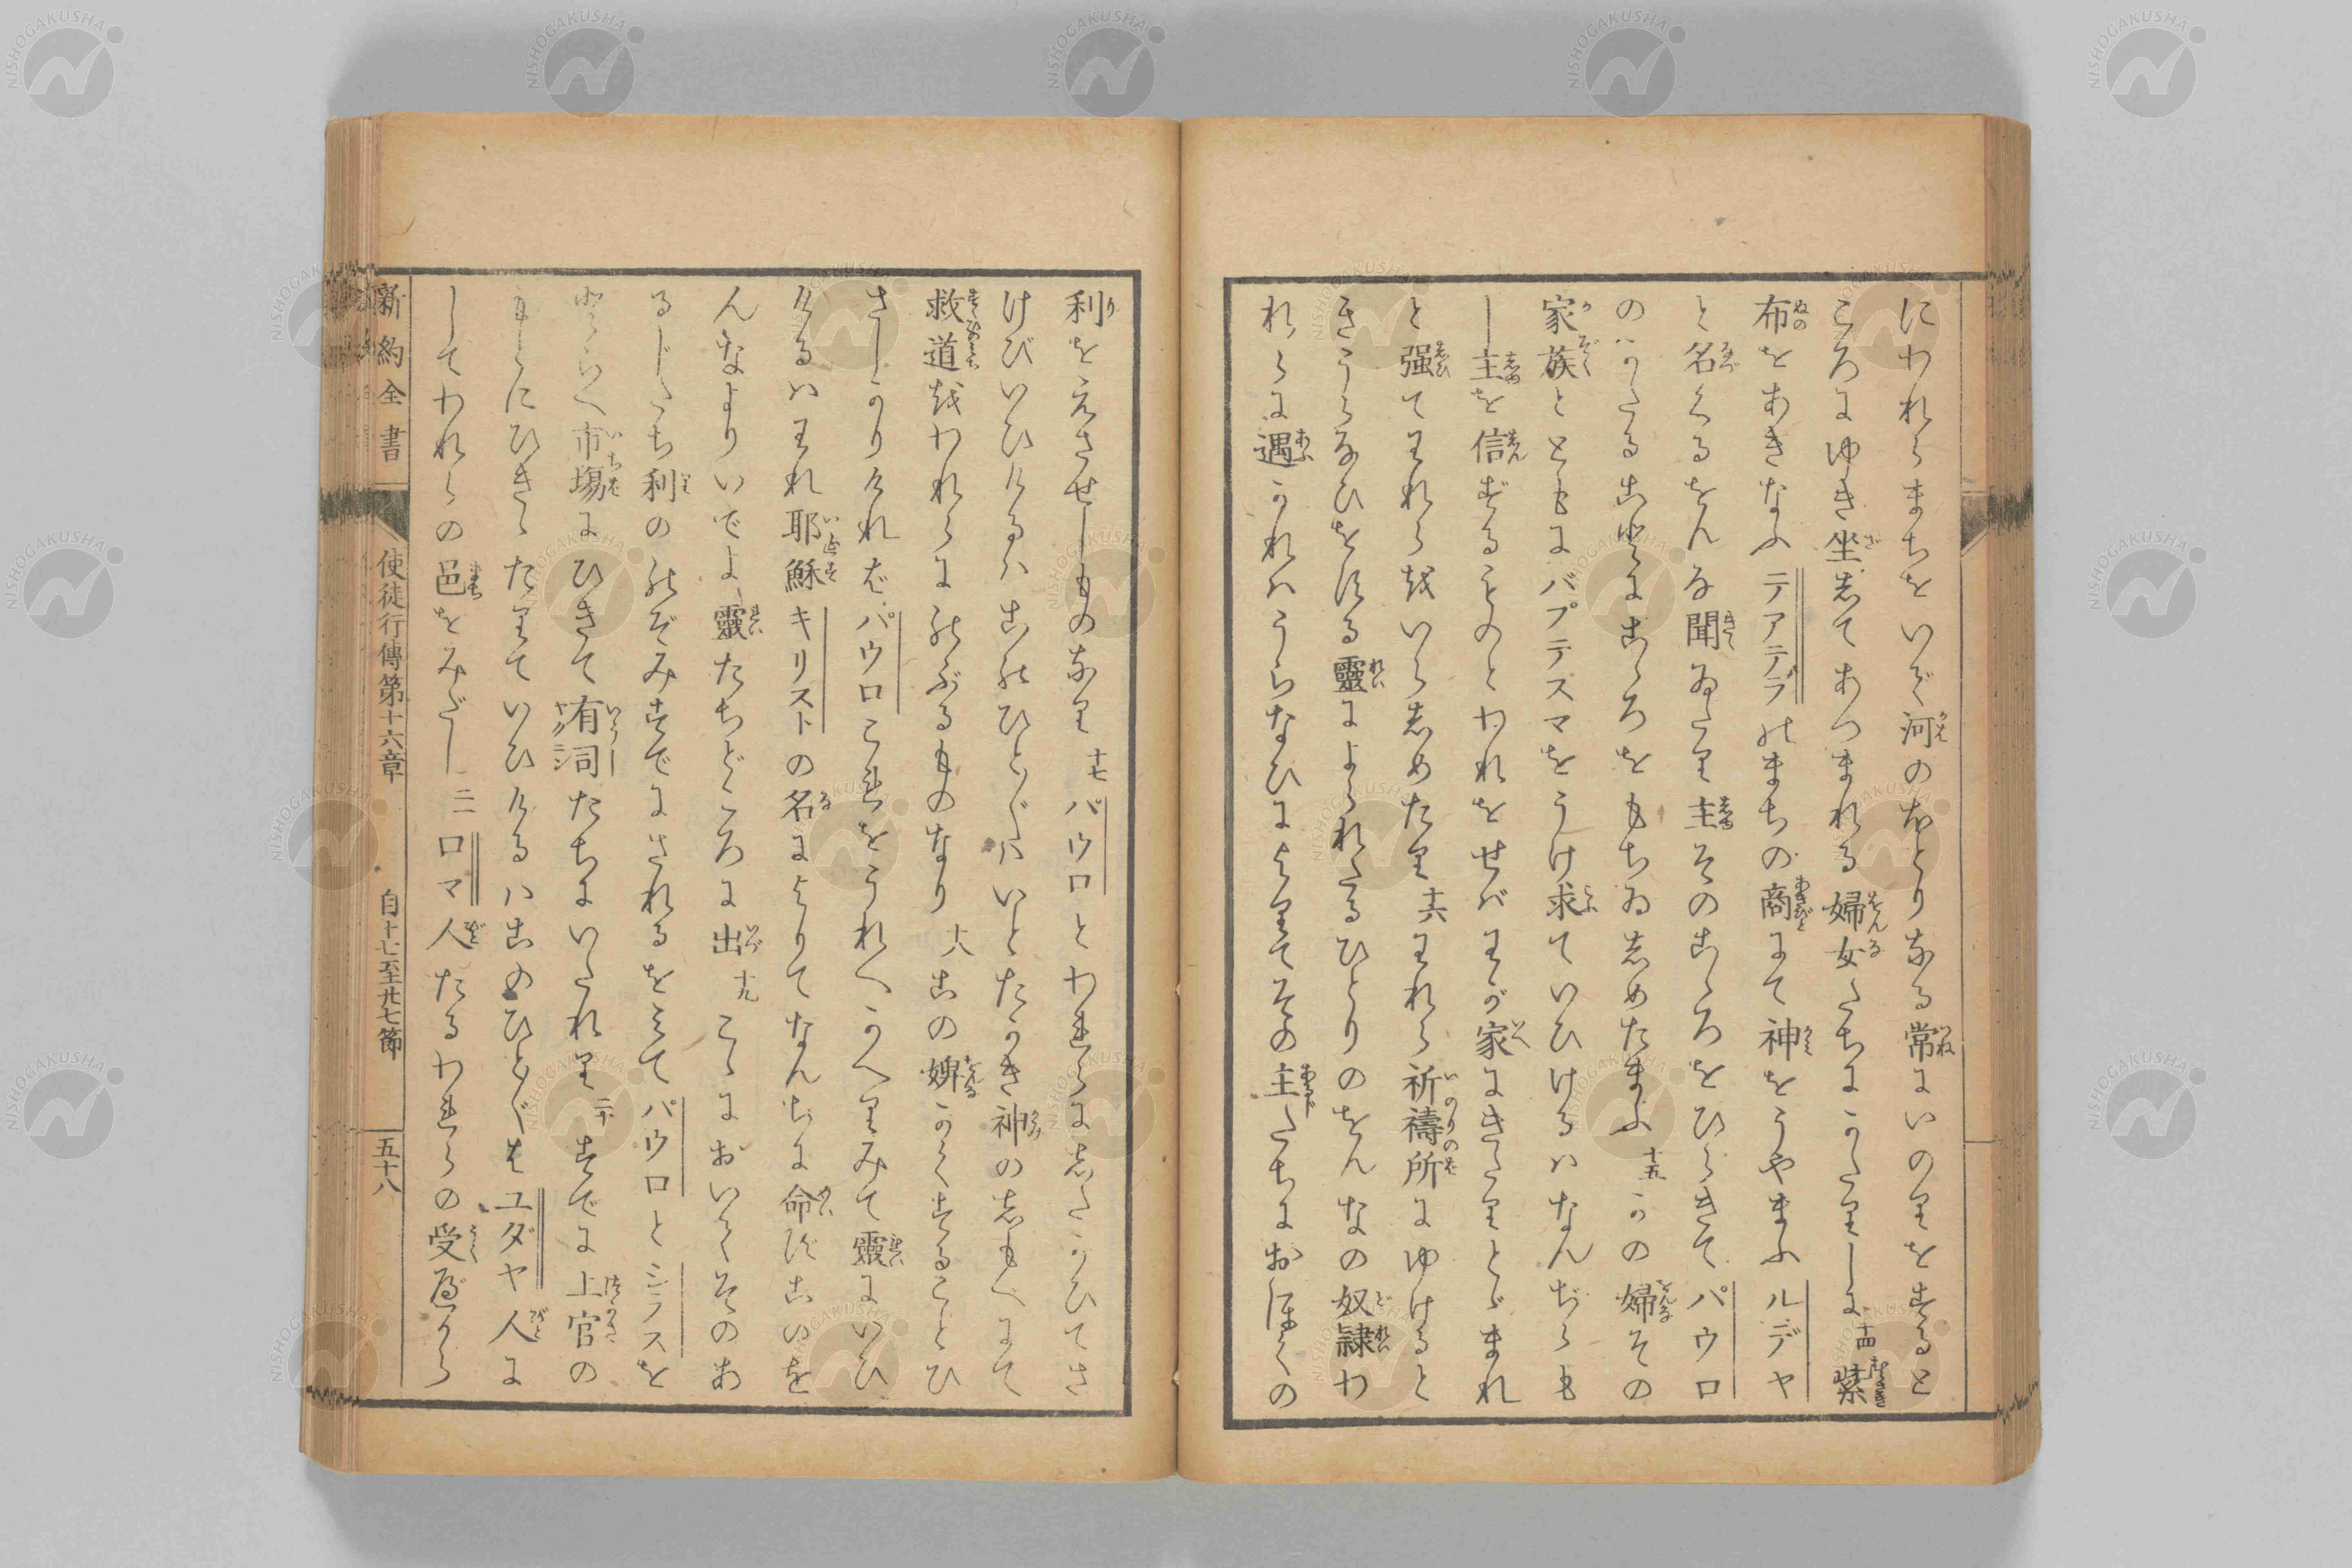 にわれらまちをいで河のほとりなる常にいのりをすると
ころにゆき坐してあつまれる婦女たちにかたりしに十四紫
布をあきなふテアテラのまちの商にて神をうやまふルデヤ
と名くるをんな聞ゐたり主そのこゝろをひらきてパウロ
のかたることにこゝろをもちゐしめたまふ十五かの婦その
家族とともにバプテスマをうけ求ていひけるハなんぢらも
し主を信ずるものとわれをせバわが家にきたりとゞまれ
と强てわれらをいらしめたり十六われら祈禱所にゆけると
きうらなひをする靈によられたるひとりのをんなの奴隷わ
れらに遇かれハうらなひによりてその主たちにおほくの
利をえさせしものなり十七パウロとわれらにしたがひてさ
けびいひけるハこのひとびとハいとたかき神のしもべにて
救道をわれらにのぶるものなり十八この婢かくすることひ
さしかりければパウロこれをうれへかへりみて靈にいひ
けるハわれ耶穌キリストの名によりてなんぢに命ずこのを
んなよりいでよ靈たちどころに出十九こゝにおいてそのあ
るじたち利ののぞみすでにされるをみてパウロとシラスを
とらへ市塲にひきて有司たちにいたれり二十すでに上官の
もとにひきゝたりていひけるハこのひとびとはユダヤ人に
してわれらの邑をみだし二一ロマ人たるわれらの受べから
新約全書
使徒行傳第十六章
自十七至廿七節
五十八
NISHOGAKUSHA